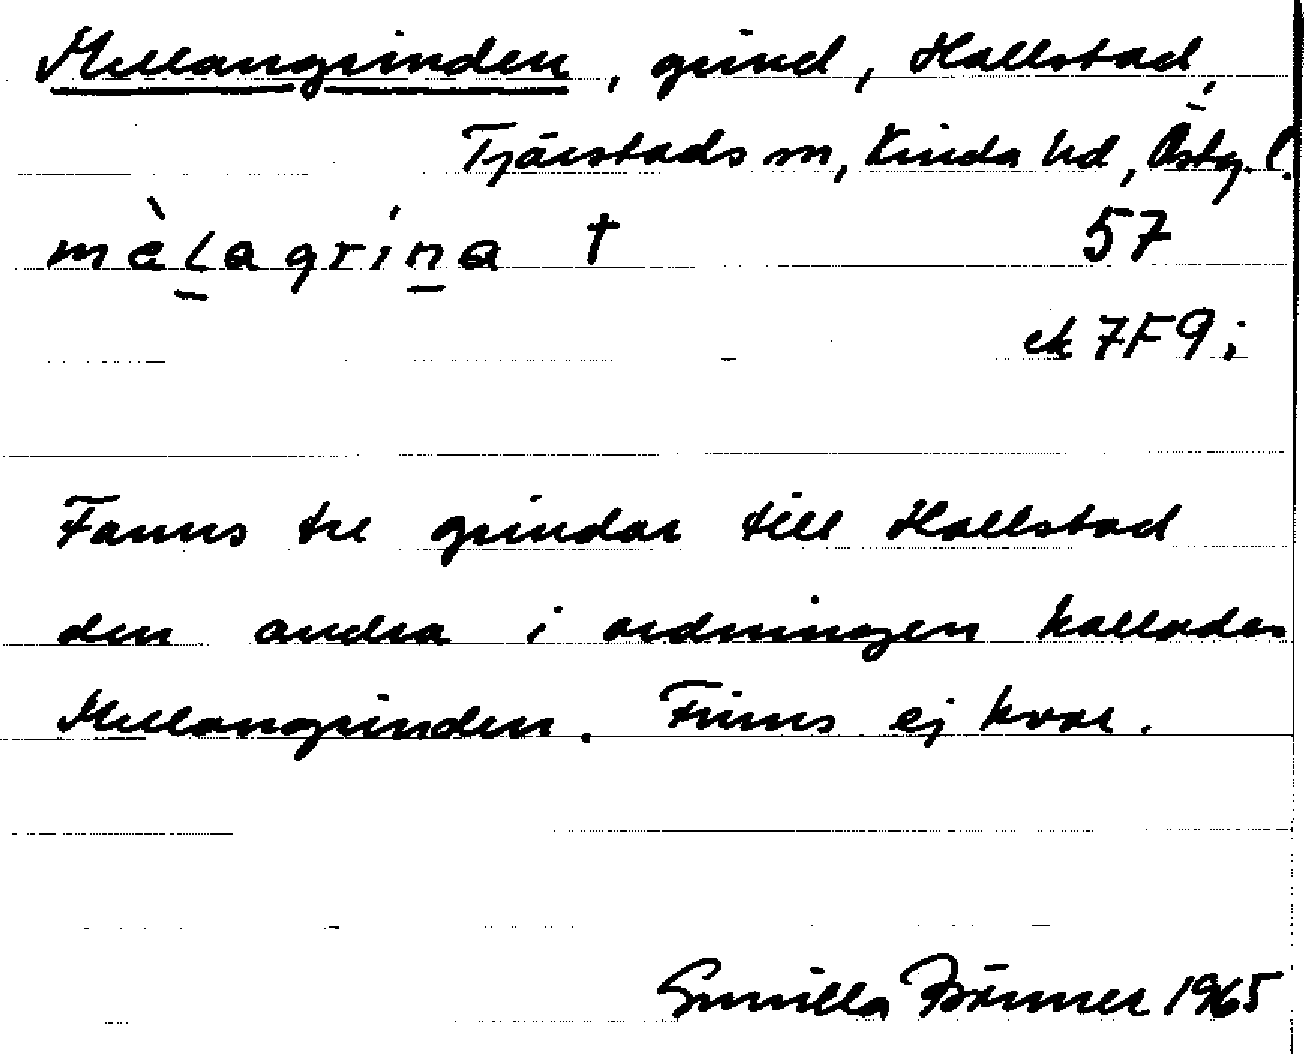 Mellangrinden, grind, Hallstad,
Tjärstads sn, Kinda hd, Östg. l.
mèlagrína †
57
ek 7F9i
Fanns tre grindar till Hallstad
den andra i ordningen kallades
Mellangrinden. Finns ej kvar.
Gunilla 1965